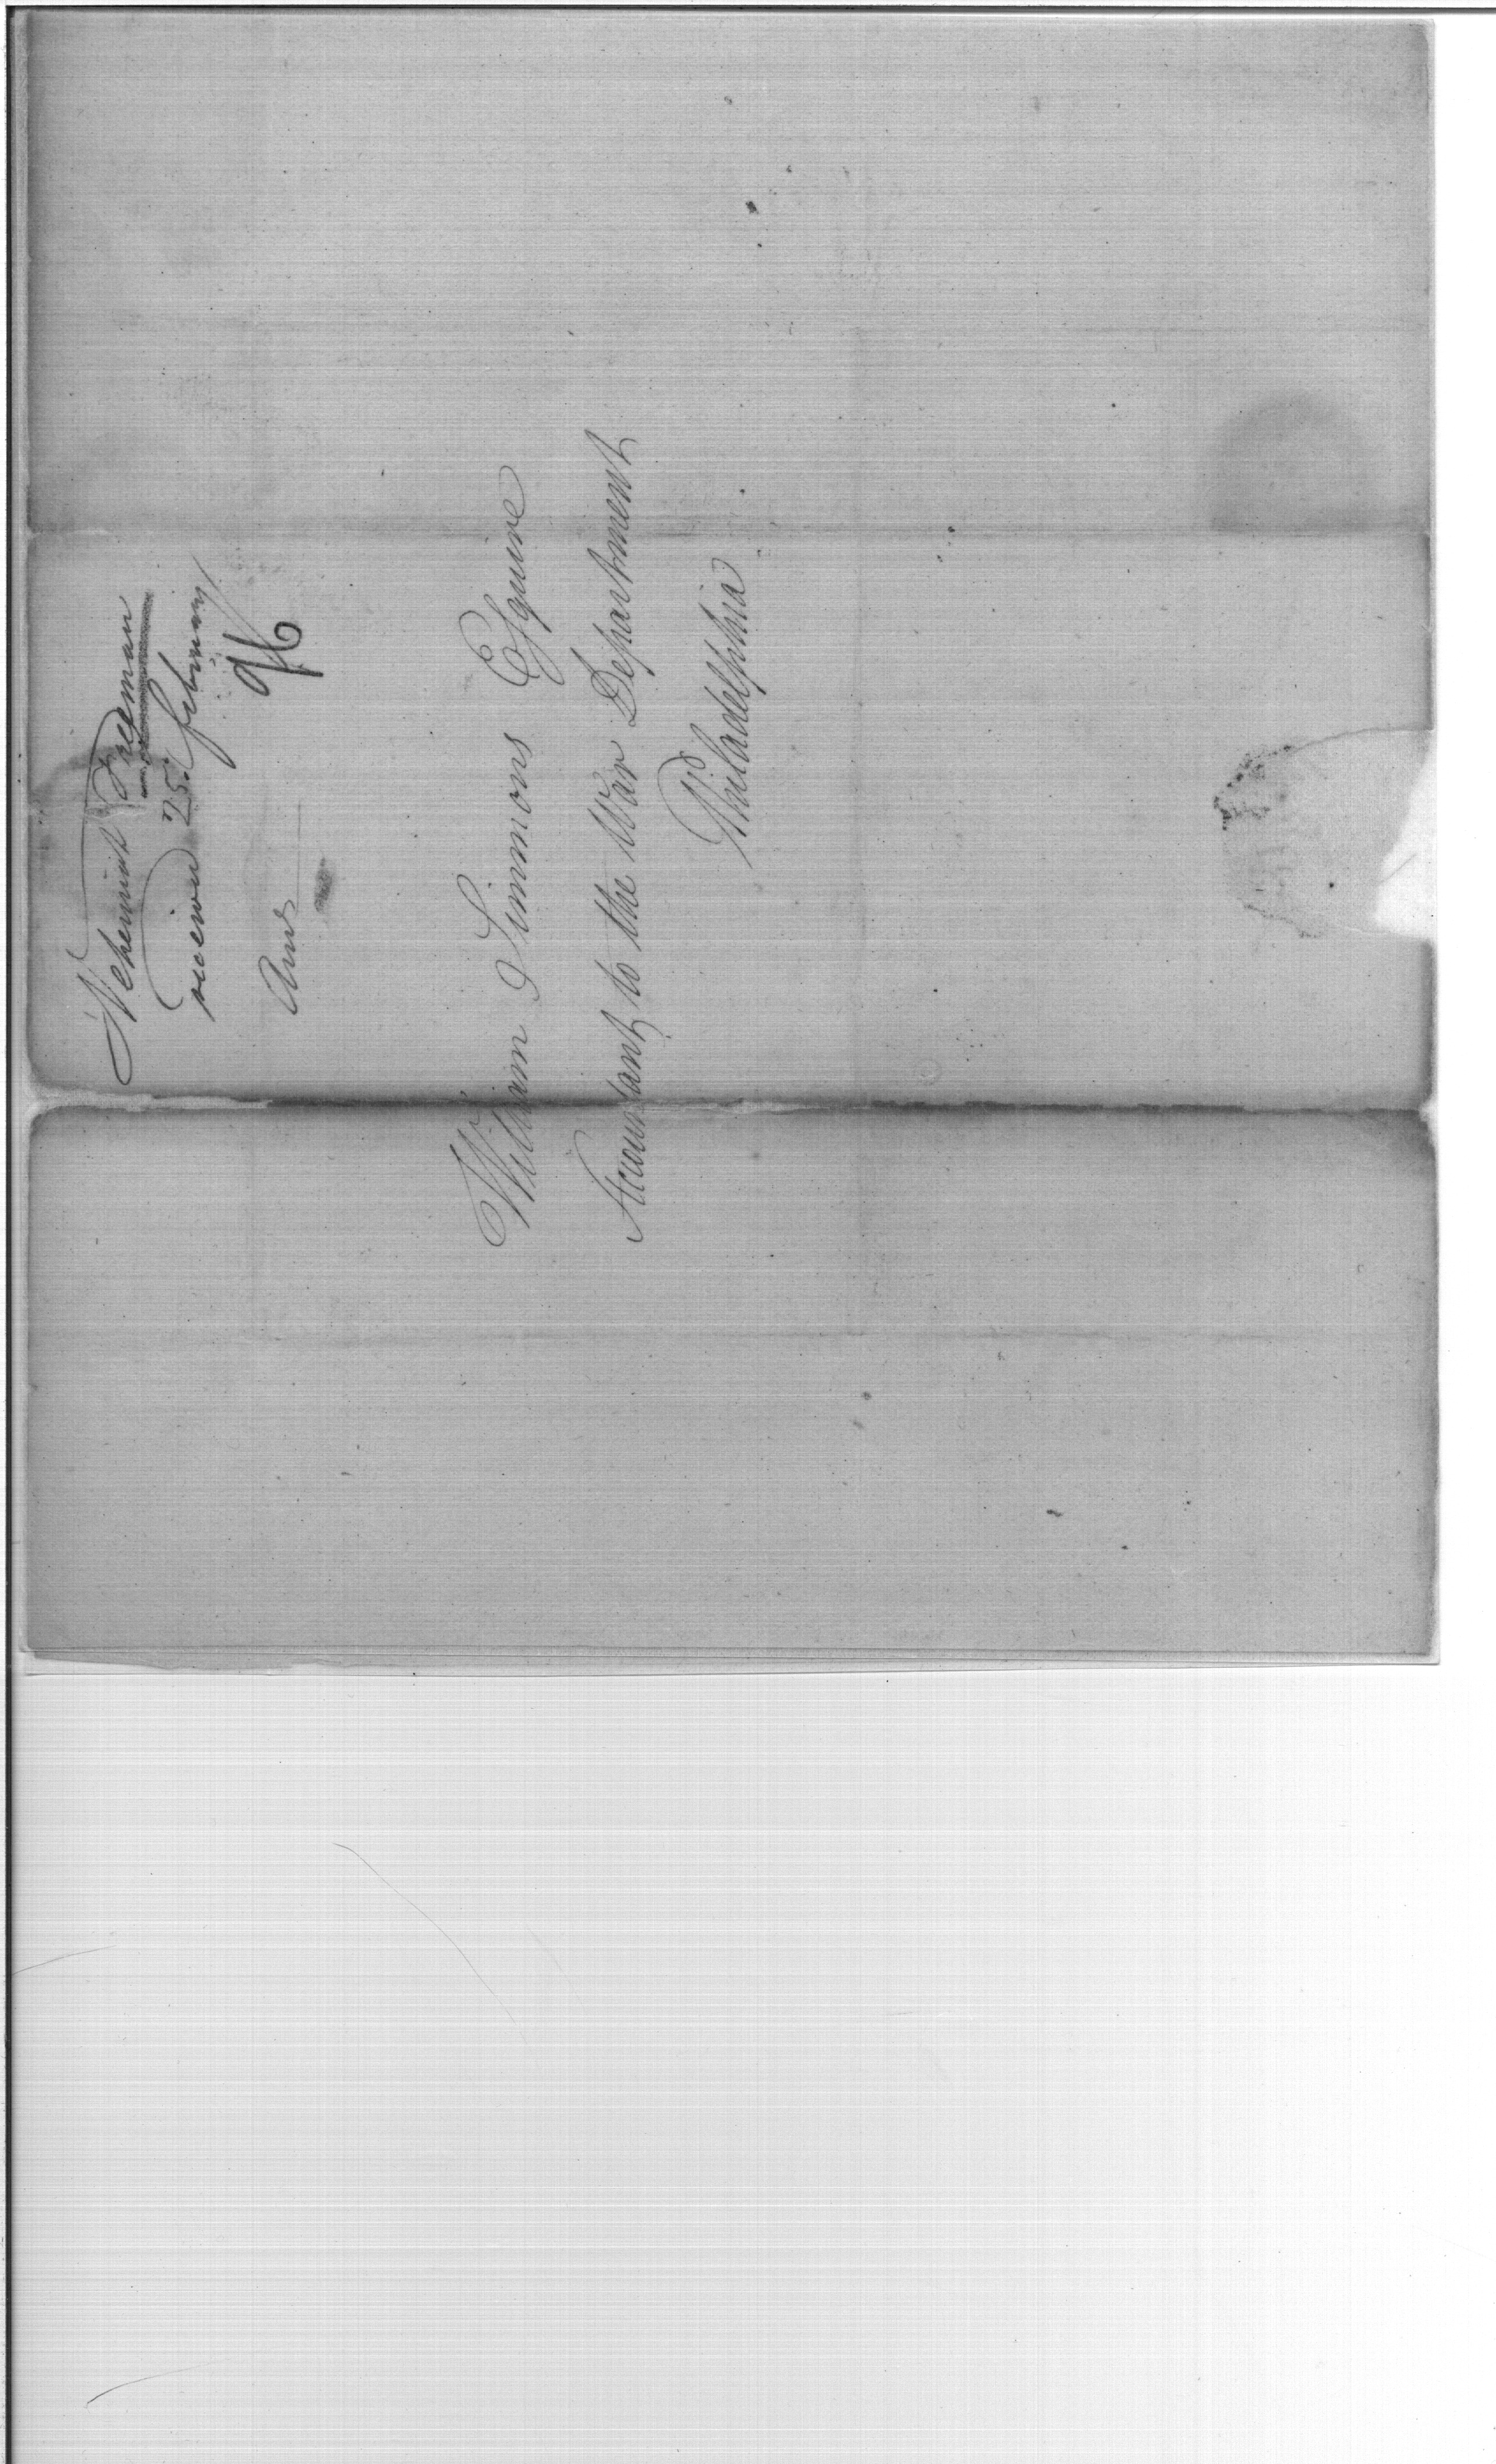 Nehemiah Freeman
received 25 february
96
Ansd
William Simmons Esquire
Accountant to the War Department
Philadelphia